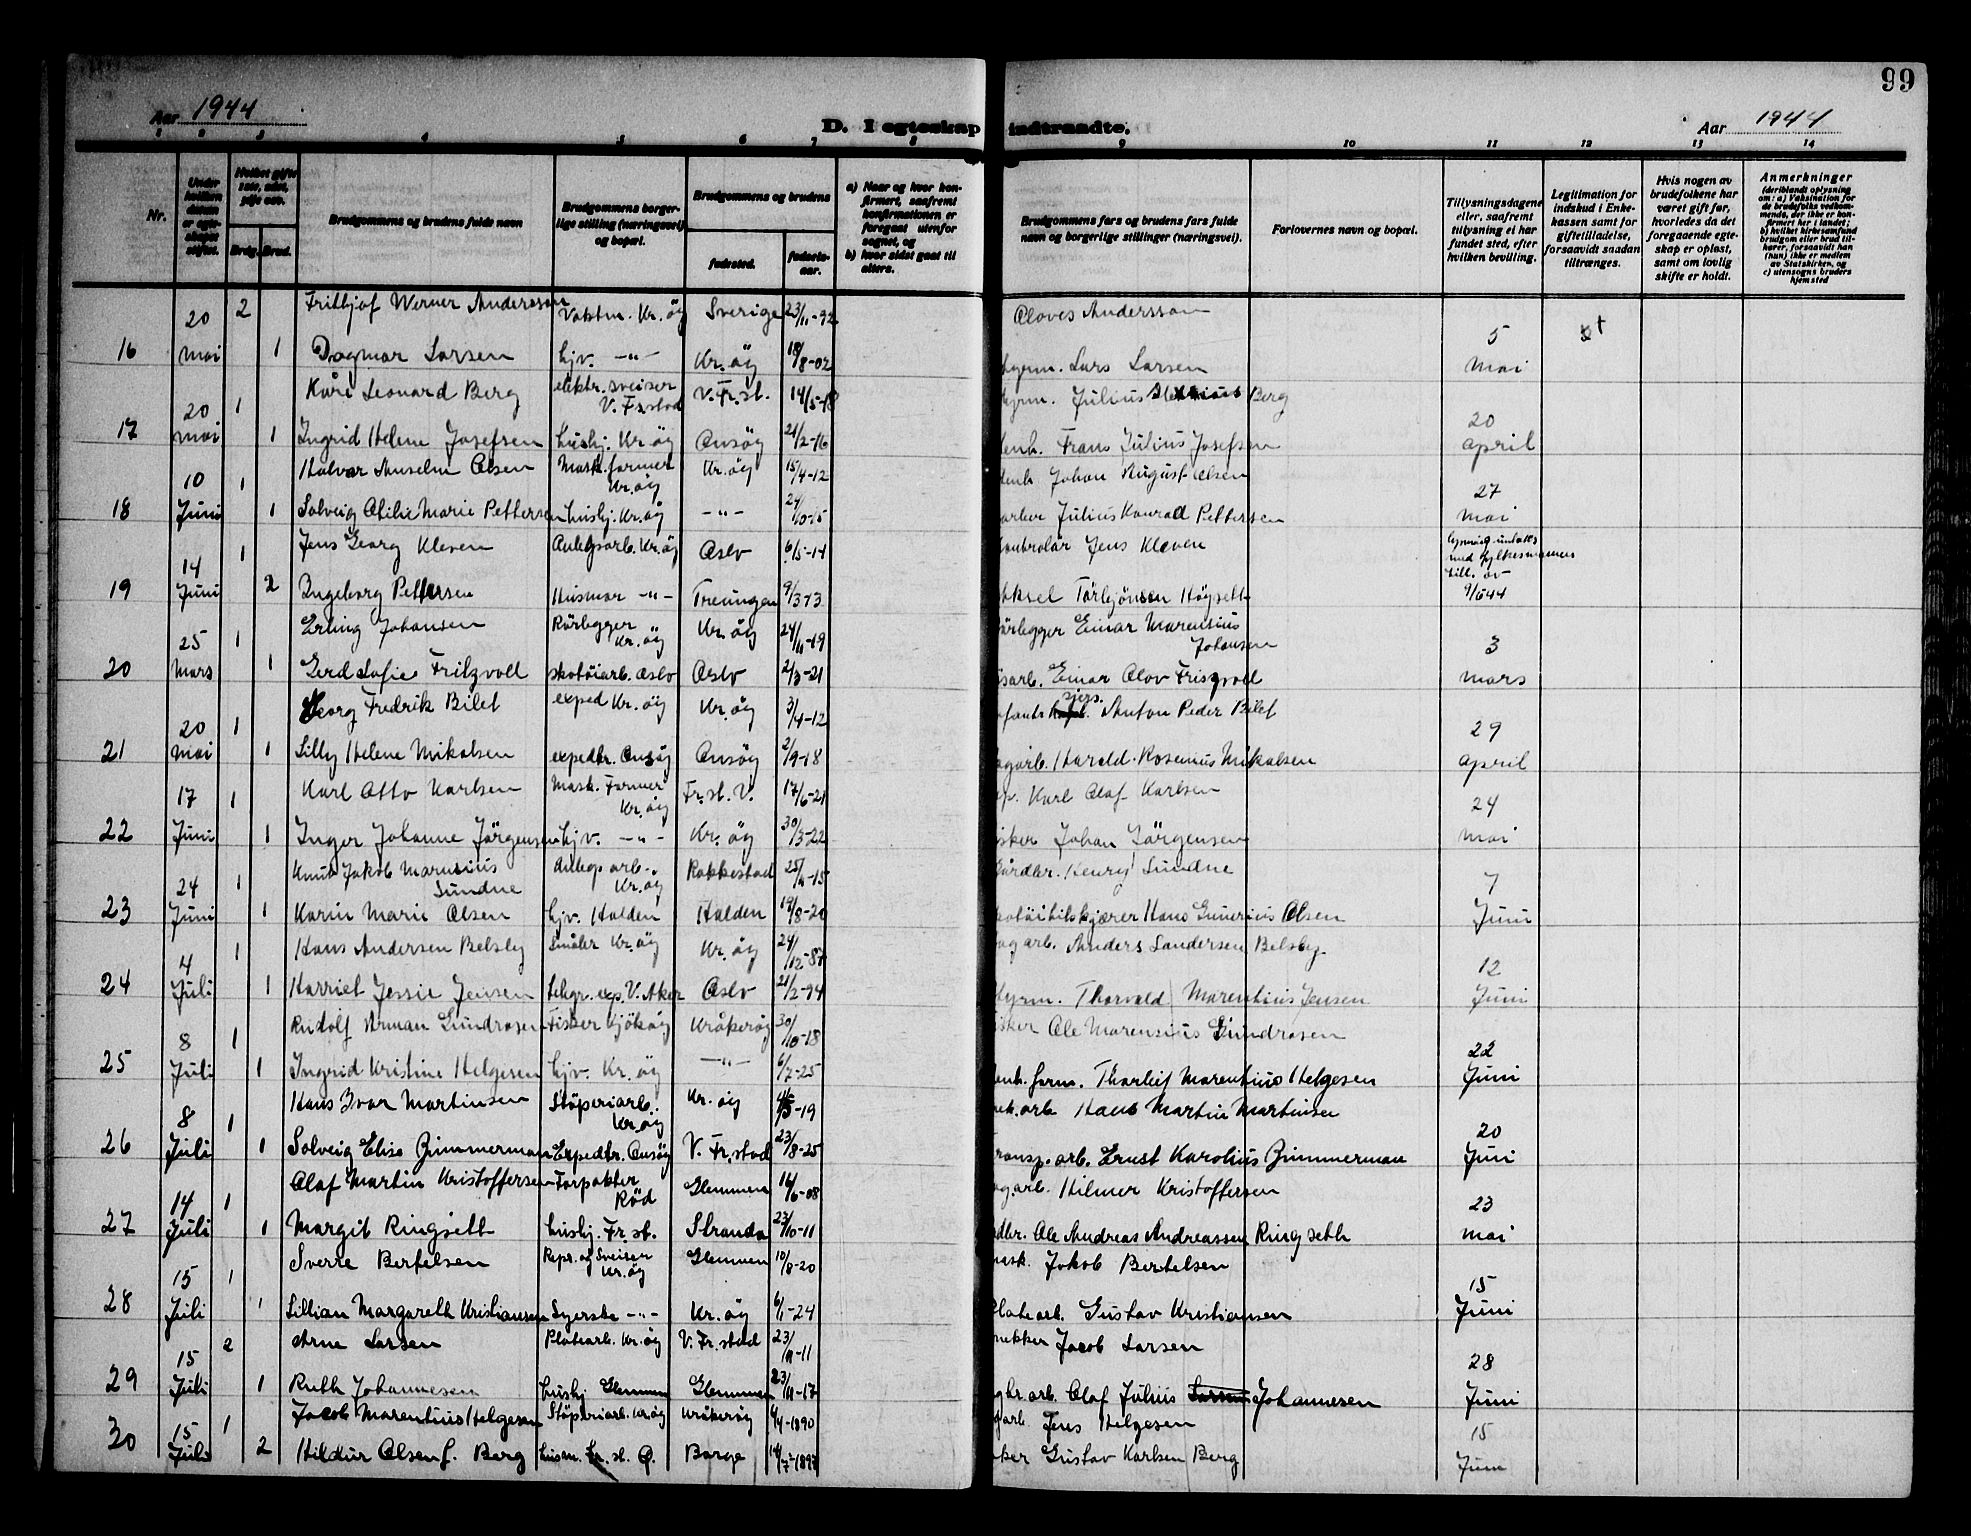 99
Aar 1944
D. I egteskap indtraadte.
Aar 1944
1 2 3 4 5 6 7 8 9 10 11 12 13 14
Nr.
Hvilket gifte
Brudg. Brud.
Brudgommens og brudens fulde navn
Brudgommens borger-
lige stilling (næringsvei)
og bopæl.
Brudgommens og brudens
fødested.
fødsels-
aar.
a) Naar og hvor kon-
firmert, saafremt
konfirmationen er
foregaat utenfor
sognet, og
b) hvor sidst gaat til
alters.
Brudgommens fars og brudens fars fulde
navn og borgerlige stillinger (næringsvei).
Forlovernes navn og bopæl.
Tillysningsdagene
eller, saafremt
tillysning ei har
fundet sted, efter
hvilken bevilling.
Legitimation for
indskud i Enke-
kassen samt for
giftetilladelse,
forsaavidt saadan
tiltrænges.
Hvis nogen av
brudefolkene har
været gift før,
hvorledes da det
foregaaende egte-
skap er opløst,
samt om lovlig
skifte er holdt.
Anmerkninger
(deriblandt oplysning
om: a) Vaksination for
de brudefolks vedkom-
mende, der ikke er kon-
firmert her i landet;
b) hvilket kirkesamfund
brudgom eller brud til-
hører, forsaavidt han
(hun) ikke er medlem
av Statskirken, og
c) utensogns bruders
hjemsted
20 2 Fritjof Werner Andersson Vaktm. Kr.øy Sverige 23/11-92 Andersson 5
16 mai 1 Dagmar Larsen hjv. -"- Kr.øy 18/8-02 Lars Larsen mai
20 1 Kåre Leonard Berg elektr. sveiser V. Fr.stad V.Fr.st. 14/5-18 Julius Berg 20
17 mai 1 Ingrid Helene Josefsen hushj. Kr.øy Onsøy 21/2-16 Frans Julius Josefsen april
10 1 Halvar Anselm Olsen Mask.former Kr.øy Kr.øy 15/4-12 Johan August Olsen 27
18 Juni 1 Solveig Otilie Marie Pettersen hushj. Kr.øy -"- Julius Konrad Pettersen mai
14 1 Jens Georg Kleven Anlegsarb. Kr.øy Oslo 6/5-14 Jens Kleven
19 Juni 2 Ingeborg Pettersen Husmor -"- Treungen 9/3-13 9/6 44
25 1 Erling Johansen Rørlegger Kr.øy Kr.øy 24/11-19 Einar Marentius Johansen 3
20 Mars 1 Gerd Sofie Fritzvoll skotøiarb. Oslo Oslo 2/3-21 Einar Olov mars
20 1 Georg Fredrik Bilet exped Kr.øy Kr.øy 3/4-12 Anton Peder Bilet 29
21 mai 1 Lilly Helene Mikalsen expedtr. Onsøy Onsøy 2/9-18 Harald Rosenius Mikalsen april
17 1 Karl Otto Karlsen Mask. Former Kr.øy Fr.st.V. 17/6-21 Karl Olaf Karlsen 24
22 Juni 1 Inger Johanne Jørgensen hjv. -"- Kr.øy 30/3-22 Johan Jørgensen mai
24 1 Knut Jakob Marensius Sundne Kr.øy Rakkestad Henry Sundne 7
23 Juni 1 Karin Marie Olsen hjv. Halden Halden 19/8-20 Hans Gunerius Olsen Juni
4 1 Hans Andersen Belsby Kr.øy Kr.øy 24/12-87 Anders Sandersen Belsby. 12
24 Juli 1 Harriet Jessie Jensen telgr. exp. V. Aker Oslo 21/2-94 Thorvald Marentius Jensen Juni
8 1 Rudolf Norman Gundrosen Fisker Kjøkøy Kråkerøy 30/10-18 Ole Marensius Gundrosen 22
25 Juli 1 Ingrid Kristine Helgesen hjv. Kr.øy -"- 6/7-25 Thorleif Marentius Helgesen Juni
8 1 Hans Ivar Martinsen Støperiarb. Kr.øy Kr.øy Hans Martin Martinsen 20
26 Juli 1 Solveig Elise Zimmerman Expedtr. Onsøy V. Fr.stad 23/8-25 Ernst Karolius Zimmerman Juni
14 1 Olaf Martin Kristoffersen Forpakter Rød Glemmen 16/6-08 Hilmer Kristoffersen 23
27 Juli 1 Margit Ringsett hushj. Fr.st. Stranda 23/10-11 Ole Andreas Andreassen Ringseth mai
15 1 Sverre Bertelsen Repr. og Sveiser Kr.øy Glemmen 10/8-20 Jakob Bertelsen 15
28 Juli 1 Lillian Margareth Kristiansen Syerske -"- Kr.øy 6/1-24 Platearb. Gustav Kristiansen Juni
15 2 Arne Larsen Platearb. Kr.øy V. Fr.stad 23/11-11 Jacob Larsen 28
29 Juli 1 Ruth Johannesen hushj. Glemmen Glemmen 23/11-17 Olaf Julius Johannesen Juni
15 1 Jacob Marentius Helgesen Støperiarb. Kr.øy Kråkerøy Jens Helgesen 15
30 Juli 2 Hildur Olsen f. Berg husm. Fr.st. Ø. Borge Gustav Karlsen Berg Juni